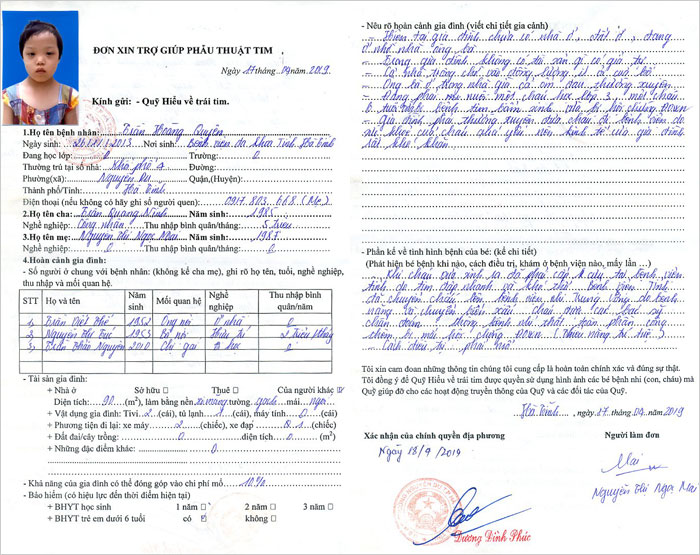 ĐƠN XIN TRỢ GIÚP PHẪU THUẬT TIM
Ngày 17 tháng 09 năm 2019
Kính gửi: - Quỹ Hiểu về trái tim.
1.Họ tên bệnh nhân: Trần Hoàng Quyên
Ngày sinh: 26 2013 Nơi sinh: Bệnh viện đa khoa Tỉnh Hà Tĩnh
Đang học lớp: 0 Trường: 0
Thường trú tại số nhà: Khối phố 4 Đường:
Phường(xã): Nguyễn Du Quận,(Huyện):
Thành phố/Tỉnh: Hà Tĩnh
Điện thoại (nếu không có hãy ghi số người quen): 0917.803.668 (Mẹ)
2.Họ tên cha: Trần Quang Ninh Năm sinh: 1985
Nghề nghiệp: Công nhân Thu nhập bình quân/tháng: 5 triệu
3.Họ tên mẹ: Nguyễn Thị Ngọc Mai Năm sinh: 1987
Nghề nghiệp: 0 Thu nhập bình quân/tháng: 0
4.Hoàn cảnh gia đình:
- Số người ở chung với bệnh nhân: (không kể cha mẹ), ghi rõ họ tên, tuổi, nghề nghiệp,
thu nhập và mối quan hệ:
STT Họ và tên Năm sinh Mối quan hệ Nghề nghiệp Thu nhập bình quân/năm
1, Trần Viết Ông nội ở nhà 0
2, Nguyễn Thị Bà nội 2 triệu/tháng
3, Trần Thảo Nguyên 2010 Chị gái Đi học 0
- Tài sản gia đình:
+ Nhà ở Sở hữu Thuê Của người khác
Diện tích: 90 (m²), làm bằng nền xi măng tường gạch mái ngói
+ Vật dụng gia đình: Tivi 2 (cái), tủ lạnh 1 (cái), máy tính 0 (cái)
+ Phương tiện đi lại: xe máy 2 (chiếc), xe đạp 1 (chiếc)
+ Đất đai/cây trồng: 0 diện tích 0 (m²)
+ Những đặc điểm khác: 0
- Khả năng của gia đình có thể đóng góp vào chi phí mổ 10%
- Bảo hiểm (có hiệu lực đến thời điểm hiện tại)
+ BHYT học sinh 1 năm 2 năm 3 năm
+ BHYT trẻ em dưới 6 tuổi có không
- Nêu rõ hoàn cảnh gia đình (viết chi tiết gia cảnh)
- Hiện tại gia đình chưa có nhà ở, đất ở, đang
ở nhờ nhà ông bà
- Trong gia đình không có tài sản gì có giá trị
- Cả nhà trông chờ vào đồng lương ít ỏi của bố
- Ông bà ở trong nhà già cả ốm đau thường xuyên
- Đồng phải nuôi một cháu học lớp 3, một cháu
bị bệnh tim bẩm sinh và bị hội chứng Down
- Gia đình phải thường xuyên đưa cháu đi bệnh viện do
sức khỏe của cháu quá yếu nên kinh tế của gia đình
rất khó khăn
- Phần kể về tình hình bệnh của bé: (kể chi tiết)
(Phát hiện bị bệnh khi nào, cách điều trị, khám ở bệnh viện nào, mấy lần …)
- Khi cháu vừa sinh ra đã phải cấp cứu tại bệnh viện
tỉnh do tim đập nhanh và khó thở. Bệnh viện Tỉnh
đã chuyển cháu lên bệnh viện nhi Trung ương do bệnh
nặng và chuyên
chẩn đoán: thông kênh nhĩ thất toàn phần cộng
thêm bị mắc hội chứng Down.
- Cách điều trị: phải mổ
Tôi xin cam đoan những thông tin chúng tôi cung cấp là hoàn toàn chính xác và đúng sự thật.
Tôi đồng ý để Quỹ Hiểu về trái tim được quyền sử dụng hình ảnh các bé bệnh nhi (con, cháu) mà
Quỹ giúp đỡ cho các hoạt động truyền thông của Quỹ và các đối tác của Quỹ.
Hà Tĩnh, ngày 17 tháng 09 năm 2019
Xác nhận của chính quyền địa phương Người làm đơn
Ngày 18/9/2019
Mai
Nguyễn Thị Ngọc Mai
Dương Đình Phúc